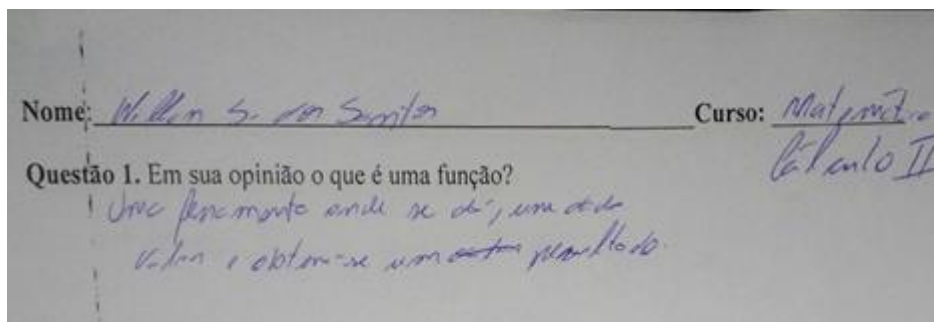 Nome: Willian S. dos Santos Curso: Matemática
Cálculo II
Questão 1. Em sua opinião o que é uma função?
Uma onde se dá, um
valor e obtem-se um resultado.